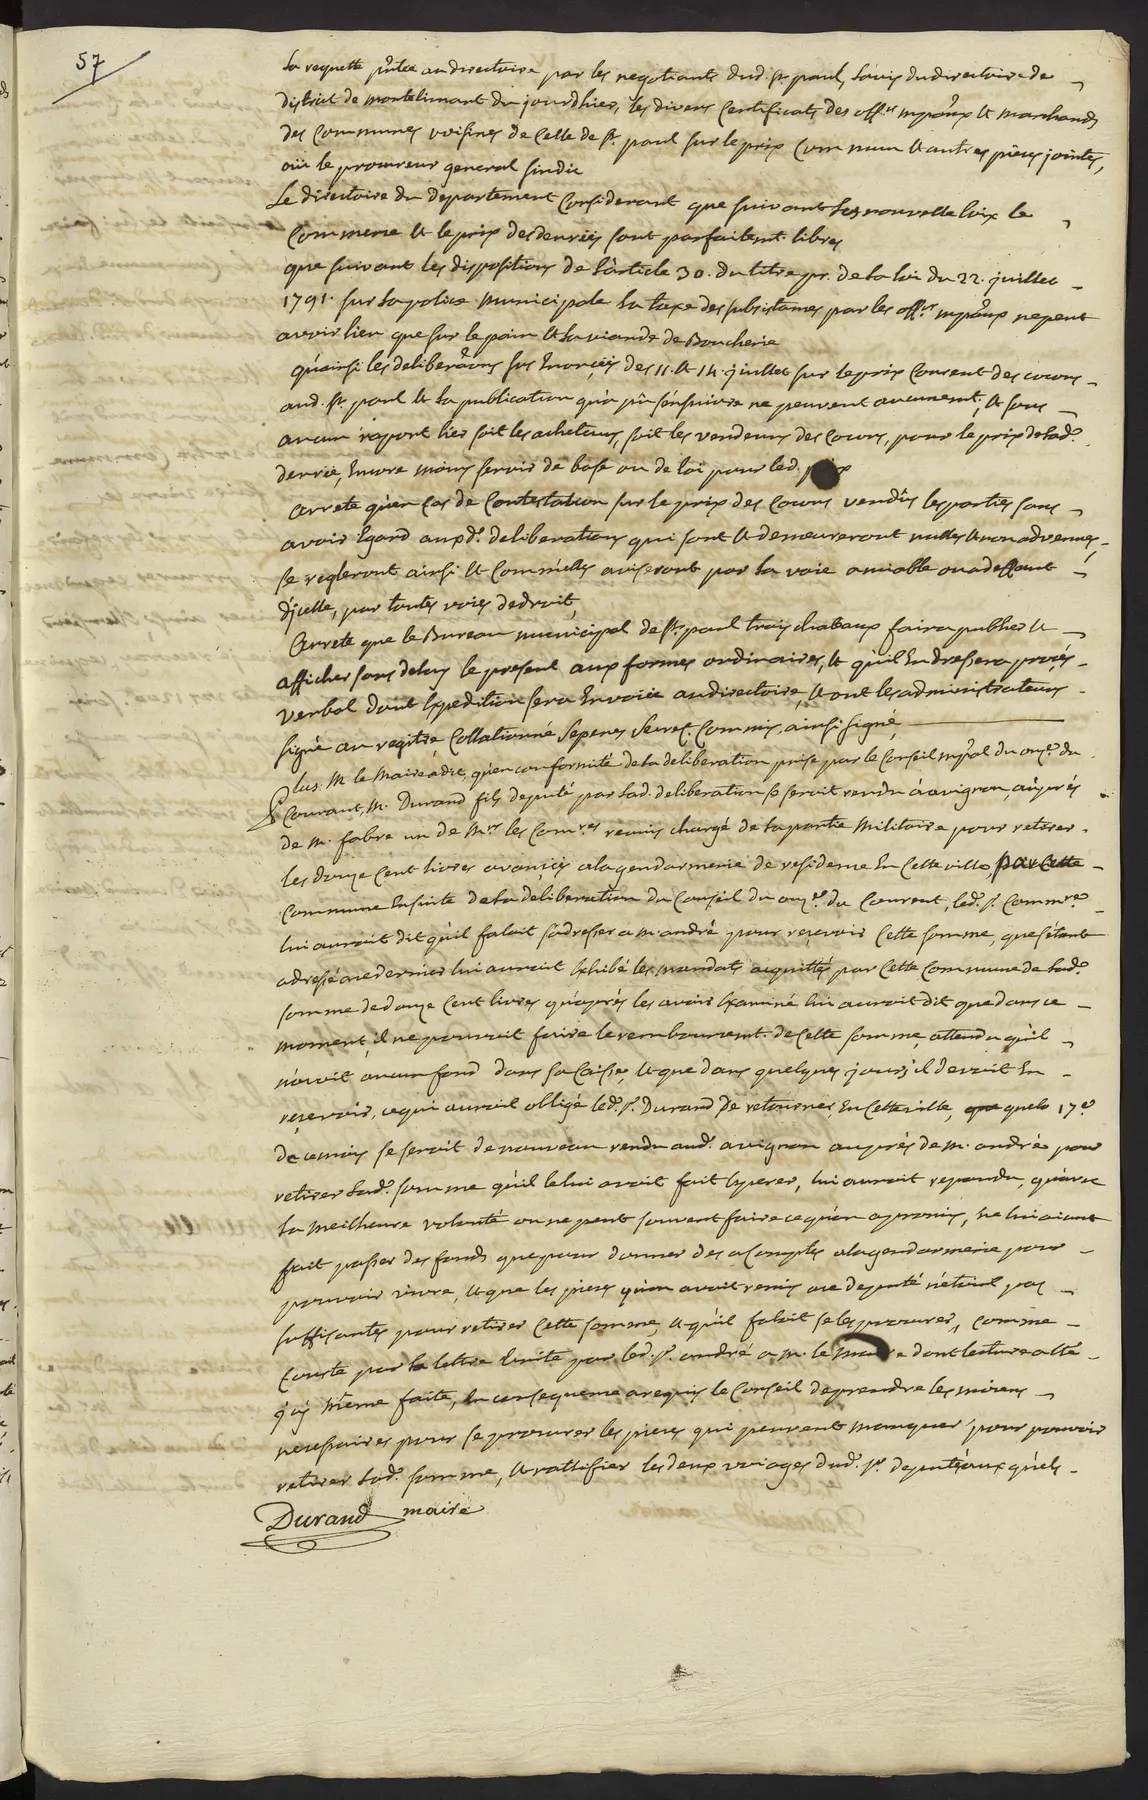 57
La requette pntée au directoire par les negotiants dud. st. paul, l'avis du directoire de
district de montelimart du jourdhier, les divers Certificats des offrs. mpãux & marchands
des Communes voisines de Celle de st. paul sur le prix Commun & autres pieces jointes,
oui le procureur general sindic
Le directoire du departement Considerant que suivant les nouvelle loix le
Commerce & le prix des denrées sont parfaitemt. libres
que suivant les dispositions de l'article 30. du titre pr. de la loi du 22. juillet
1791. sur la police municipale la taxe des subsistances par les offrs. mpãux ne peut
avoir lieu que sur le pain & la viande de Boucherie
qu'ainsi les deliberãons sus Enoncées des 11. & 14. juillet sur le prix Courent des cocons
aud. st. paul & la publication qu'a pû s'ensuivre ne peuvent aucunemt. & sous
aucun raport lier soit les acheteurs, soit les vendeurs des Cocons, pour le prix de lad.
denrée, Encore moins servir de base ou de loi pour led. prix
arrete qu'en Cas de Contestation sur le prix des Cocons vendûs les parties sans
avoir Egard auxd. deliberations qui sont & demeureront nulles & non advenues,
se regleront ainsi & Comm'elles aviseront par la voie amiable ou a deffaut
d'jcelle, par toutes voies de droit,
Arrete que le Bureau municipal de st. paul trois chateaux faira publier &
afficher sans delay le present aux formes ordinaires, & qu'il En dressera procés
verbal dont Expedition sera Envoiée au directoire, & ont les administrateurs
signé au registre, Collationné Seperes Secret. Commis, ainsi signé,
Plus. M. le Maire a dit, qu'en conformité de la deliberation prise par le Conseil mpãl du onze du
Courant, M. Durand fils deputé par lad. deliberation se seroit rendu à avignon auprés
de m. fabre un de Mrs. les Comres. reunis chargé de la partie Militaire pour retirer
les douze cent livres avancées a la gendarmerie de residence En Cette ville, par Cette
Commune Ensuite de la deliberation du Conseil du onze. du Courent, led. sr. Commre.
lui auroit dit qu'il faloit s'adresser a m. andré pour recevoir Cette somme, que s'étant
adressé a ce dernier lui auroit Exhibé les mandats acquittés par Cette Commune de lad.
somme de douze Cent livres qu'aprés les avoir Examiné lui auroit dit que dans ce
moment, il ne pouvoit faire le remboursemt. de Cette somme attendu qu'il
n'avoit aucun fond dans sa Caisse, & que dans quelques jours il devoit En
recevoir, ce qui auroit obligé led. sr. Durand de retourner En Cette ville, que quelo 17e.
de ce mois se seroit de nouveau rendu aud. avignon auprés de m. andré pour
retirer lad. somme qu'il le lui avoit fait Esperer, lui auroit repondu, qu'avec
la meilheure volonté on ne peut souvent faire ce qu'on a promis, ne lui aiant
fait passer des fonds que pour donner des a Comptes a la gendarmerie pour
pouvoir vivre, & que les pieces qu'on avoit remis au deputé n'etoint pas
suffisantes pour retirer Cette somme, & qu'il faloit se les procurer, comme
Conste par la lettre Ecrite par led. sr. andré a m. le Maire dont lecture a été
q'i meme faite, En consequence a requis le Conseil de prendre les moiens
necessaires pour se procurer les pieces qui peuvent manquer pour pouvoir
retirer lad. somme, & rattifier les deux voiages dud. sr. deputé auxquels
Durand maire